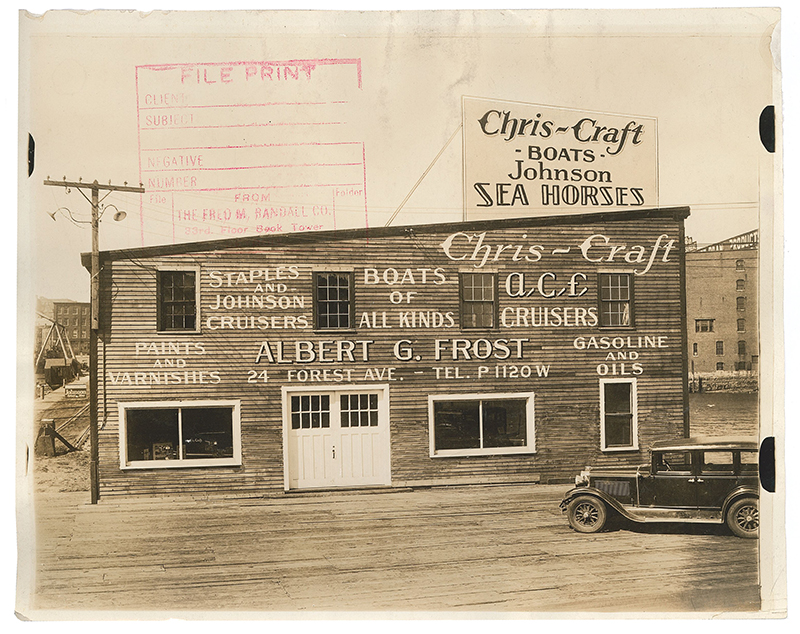 FILE PRINT
CLIENT
SUBJECT
NEGATIVE
NUMBER
File
FROM
Folder
THE FRED M. RANDALL CO.
33rd. Floor Book Tower
Chris-Craft
- BOATS -
Johnson
SEA HORSES
Chris-Craft
STAPLES
AND
JOHNSON
CRUISERS
BOATS
OF
ALL KINDS
a.c.f.
CRUISERS
PAINTS
AND
VARNISHES
ALBERT G. FROST
24 FOREST AVE. - TEL. P1120W
GASOLINE
AND
OILS